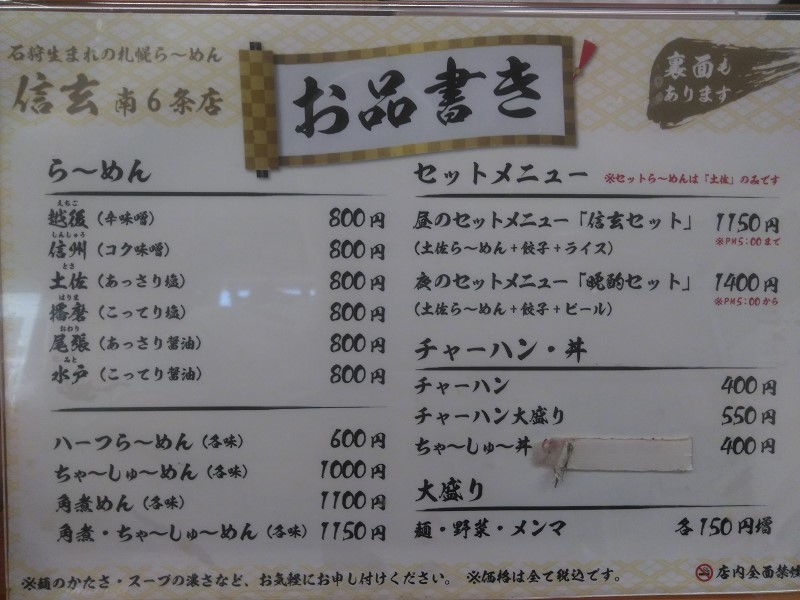 石狩生まれの札幌ら〜めん
信玄 南6条店
お品書き
裏面も
あります
ら〜めん
えちご
越後（辛味噌） 800円
しんしゅう
信州（コク味噌） 800円
とさ
土佐（あっさり塩） 800円
はりま
播磨（こってり塩） 800円
おわり
尾張（あっさり醤油） 800円
みと
水戸（こってり醤油） 800円
ハーフら〜めん（各味） 600円
ちゃ〜しゅ〜めん（各味） 1000円
角煮めん（各味） 1100円
角煮・ちゃ〜しゅ〜めん（各味） 1150円
セットメニュー ※セットら〜めんは「土佐」のみです
昼のセットメニュー「信玄セット」 1150円
（土佐ら〜めん＋餃子＋ライス） ※PM5:00まで
夜のセットメニュー「晩酌セット」 1400円
（土佐ら〜めん＋餃子＋ビール） ※PM5:00から
チャーハン・丼
チャーハン 400円
チャーハン大盛り 550円
ちゃ〜しゅ〜丼 400円
大盛り
麺・野菜・メンマ 各150円増
※麺のかたさ・スープの濃さなど、お気軽にお申し付けください。 ※価格は全て税込です。
店内全面禁煙